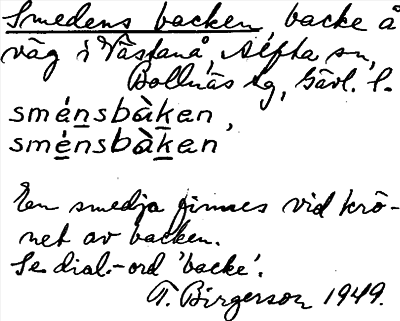 Smedens backen, backe å
väg i Västanå, Alfta sn,
Bollnäs tg, Gävl. l.
sménsbàken,
sménsbàken
En smedja finnes vid krö-
net av backen.
Se dial.-ord 'backe'.
T. Birgerson 1949.